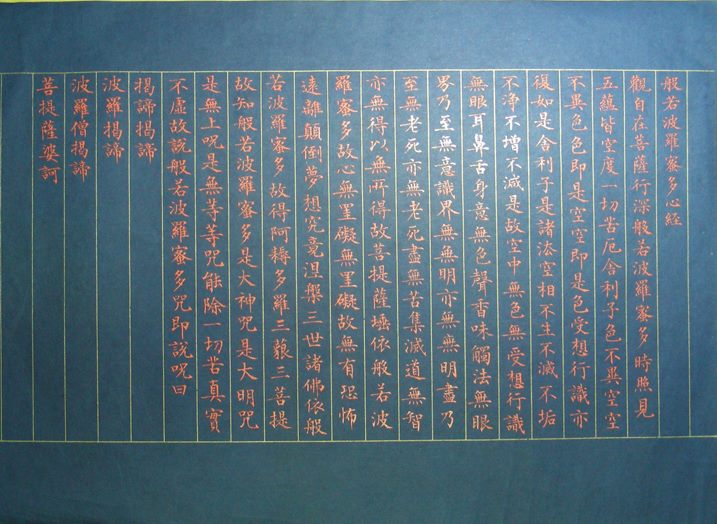 般若波羅蜜多心経
觀自在菩薩行深般若波羅蜜多時照見
五蘊皆空度一切苦厄舍利子色不異空空
不異色色即是空空即是色受想行識亦
復如是舍利子是諸法空相不生不滅不垢
不淨不增不減是故空中無色無受想行識
無眼耳鼻舌身意無色聲香味觸法無眼
界乃至無意識界無無明亦無無明盡乃
至無老死亦無老死盡無苦集滅道無智
亦無得以無所得故菩提薩埵依般若波
羅蜜多故心無罣礙無罣礙故無有恐怖
遠離顛倒夢想究竟涅槃三世諸佛依般
若波羅蜜多故得阿耨多羅三藐三菩提
故知般若波羅蜜多是大神咒是大明咒
是無上咒是無等等咒能除一切苦真實
不虛故說般若波羅蜜多咒即說咒曰
揭諦揭諦
波羅揭諦
波羅僧揭諦
菩提薩婆訶